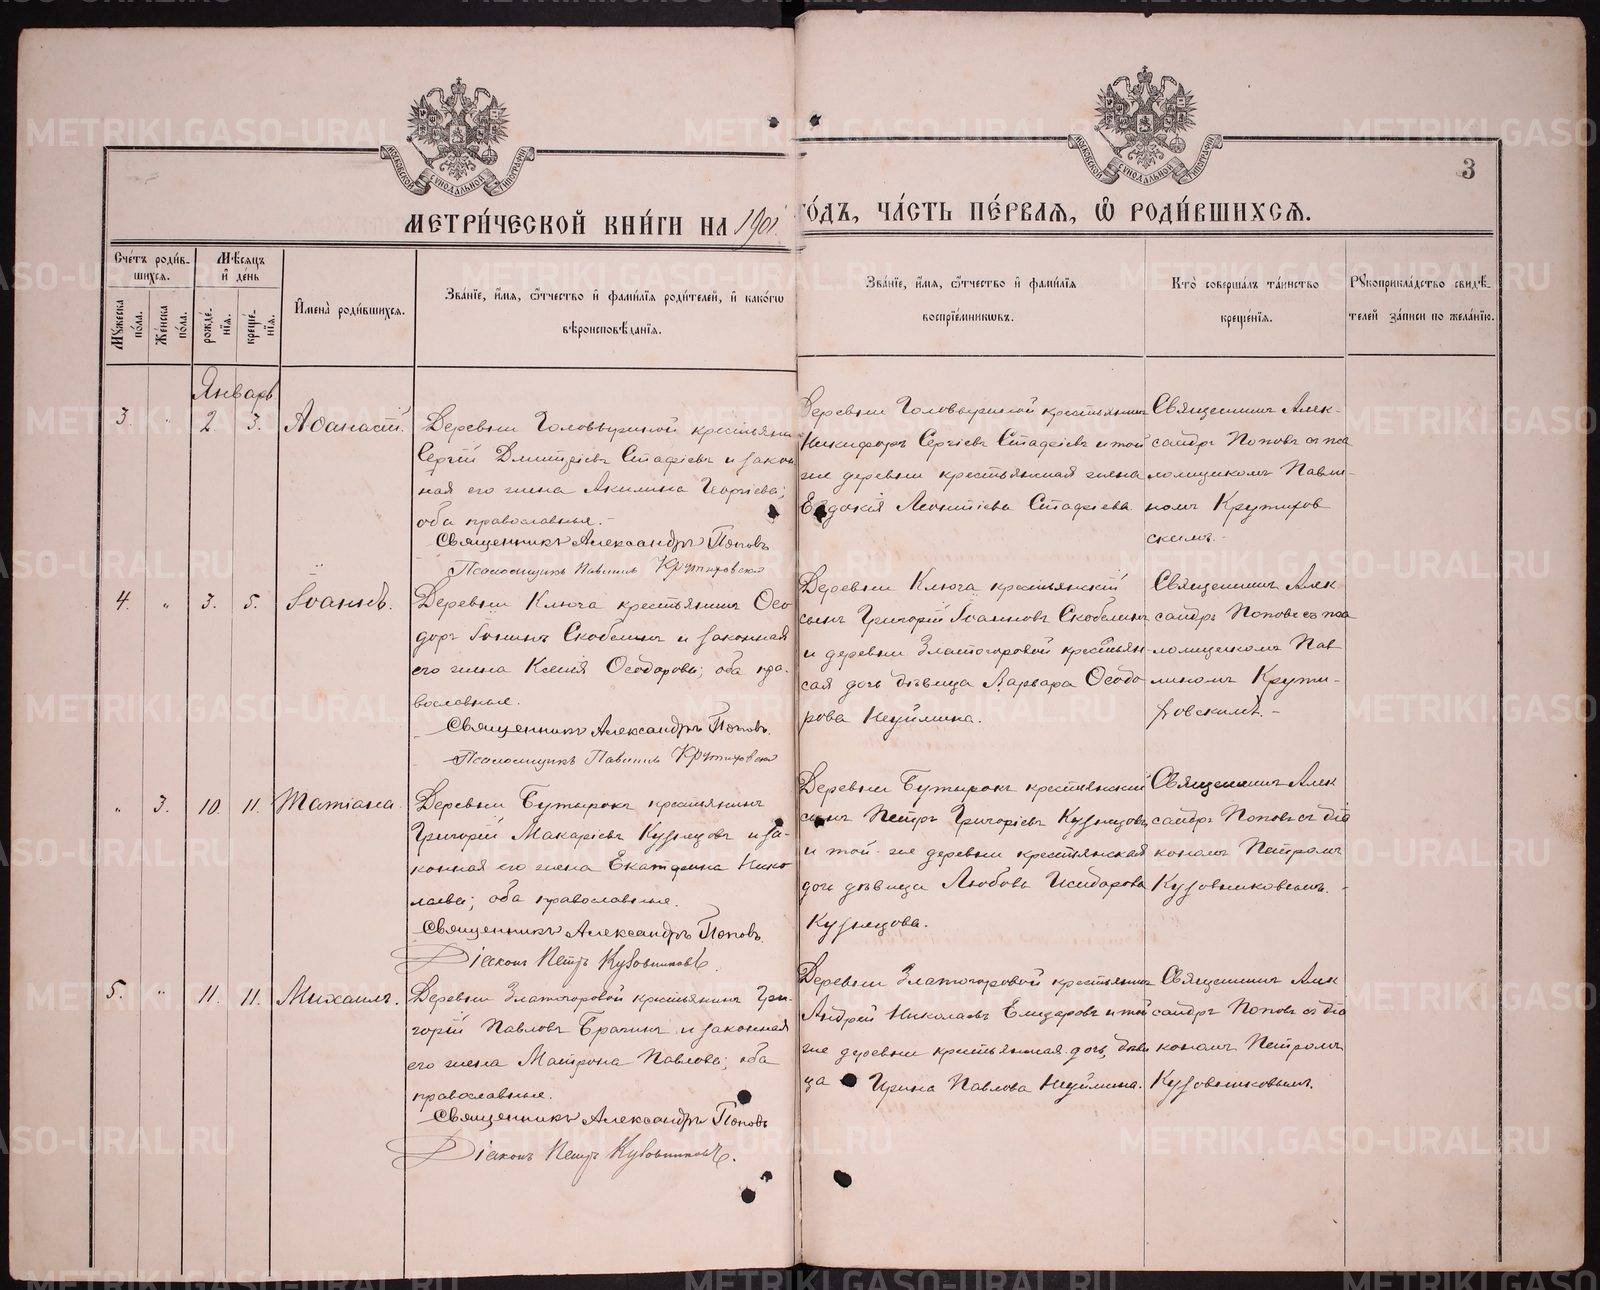 МОСКОВСКОЙ СѴНОДАЛЬНОЙ ТИПОГРАФІИ
МОСКОВСКОЙ СѴНОДАЛЬНОЙ ТИПОГРАФІИ
3
МЕТРИ́ЧЕСКОЙ КНИ́ГИ НА 1901 ГО́ДЪ, ЧА́СТЬ ПЕ́РВАЯ, Ѡ҆ РОДИ́ВШИХСЯ.
Сче́тъ роди́в-
шихся.
Мꙋ́жеска по́ла.
Же́нска по́ла.
Мѣ́сяцъ и҆ де́нь
рожде́нїя.
креще́нїя.
И҆мена̀ роди́вшихся.
Зва́нїе, и҆́мя, ѻ҆́тчество и҆ фами́лїя роди́телей, и҆ како́гѡ
вѣроисповѣ́данїя.
Зва́нїе, и҆́мя, ѻ҆́тчество и҆ фами́лїя
воспрїе́мникѡвъ.
Кто̀ соверша́лъ та́инство
креще́нїя.
Рꙋкоприкла́дство свидѣ́-
телей за́писи по жела́нїю.
Январь
3. " 2. 3. Аѳанасій.
Деревни Головыриной крестьянин
Сергій Димитріевъ Стафіевъ и закон
ная его жена Акилина Георгіева;
оба православныя.-
Священникъ Александръ Поповъ
Псаломщикъ Павлинъ Крутиховскій
Деревни Головыриной крестьянинъ
Никифоръ Сергіевъ Стафіевъ и той
же деревни крестьянская жена
Евдокія Леонтіева Стафіева
Священникъ Алек-
сандръ Поповъ съ пса
ломщикомъ Павли-
номъ Крутихов
скимъ.-
4. " 3. 5. Іоаннъ.
Деревни Ключа крестьянинъ Ѳео
доръ Іонинъ Скобелинъ и законная
его жена Ксенія Ѳеодорова; оба пра-
вославные.
Священникъ Александръ Поповъ.
Псаломщикъ Павлинъ Крутиховскій
Деревни Ключа крестьянскій
сынъ Григорій Іоанновъ Скобелинъ
и деревни Златогоровой крестьян-
ская дочь дѣвица Варвара Ѳеодо
рова Неуймина.
Священникъ Алек
сандръ Поповъ съ пса
ломщикомъ Пав
линомъ Крути-
ховскимъ.-
" 3. 10. 11. Татіана.
Деревни Бутырокъ крестьянинъ
Григорій Макаріевъ Кузнецовъ и за-
конная его жена Екатерина Нико
лаева; оба православные.
Священникъ Александръ Поповъ.
Діаконъ Петръ Кузовниковъ.
Деревни Бутырокъ крестьянскій
сынъ Петръ Григоріевъ Кузнецовъ
и той-же деревни крестьянская
дочь дѣвица Любовь Исидорова
Кузнецова.
Священникъ Алек
сандръ Поповъ съ діа
кономъ Петромъ
Кузовниковымъ.-
5. " 11. 11. Михаилъ.
Деревни Златогоровой крестьянинъ Гри-
горій Павловъ Брагинъ и законная
его жена Матрона Павлова; оба
православные.
Священникъ Александръ Поповъ
Діаконъ Петръ Кузовниковъ.
Деревни Златогоровой крестьянинъ
Андрей Николаевъ Елизаровъ и той
же деревни крестьянская дочь, дѣви
ца Ирина Павлова Неуймина.
Священникъ Алек
сандръ Поповъ съ діа
кономъ Петромъ
Кузовниковымъ.
METRIKI.GASO-URAL.RU